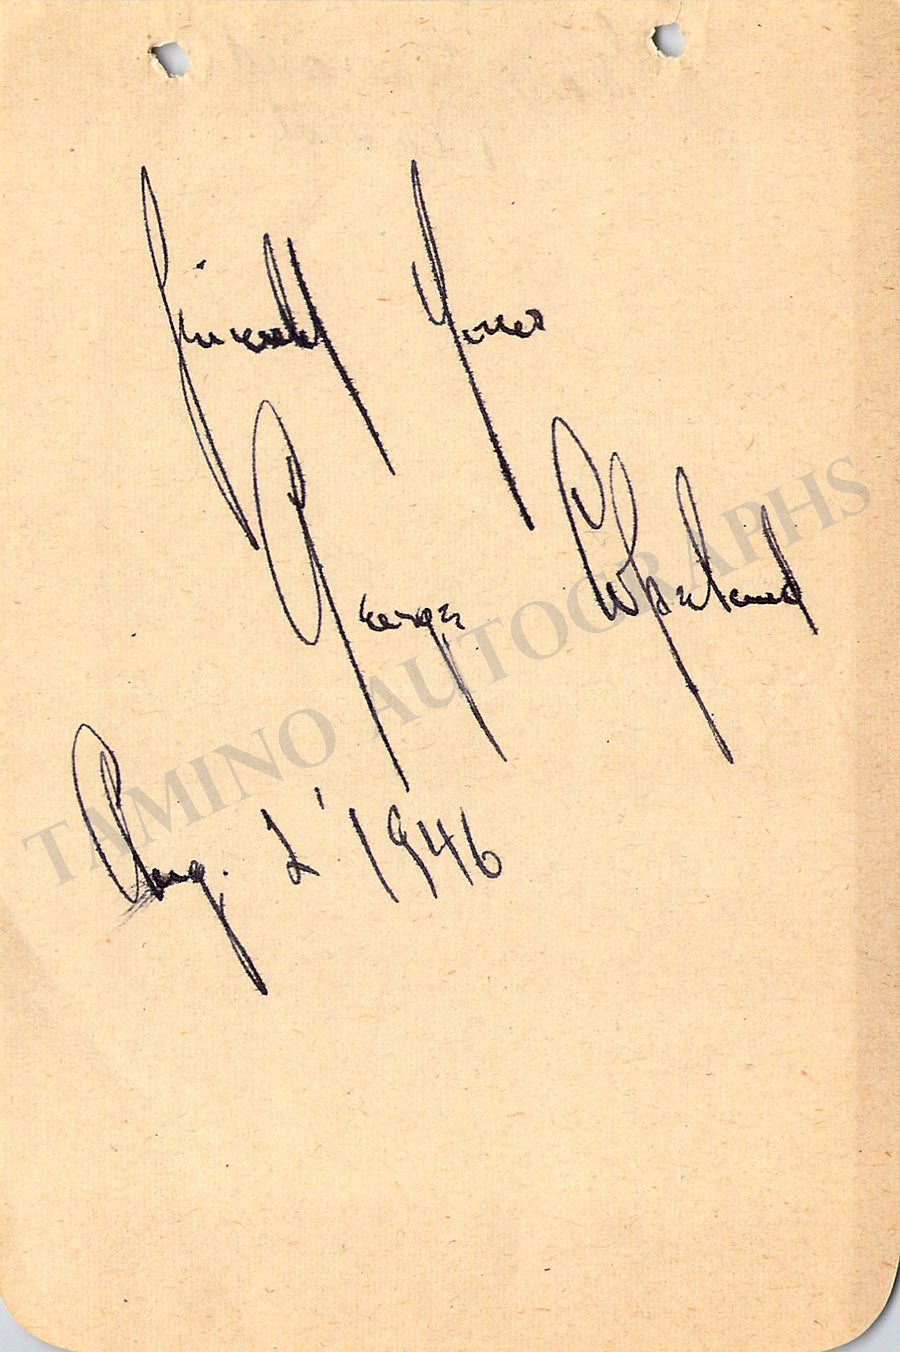 Sincerely Yours
George Copeland
Aug. 2' 1946
TAMINO AUTOGRAPHS